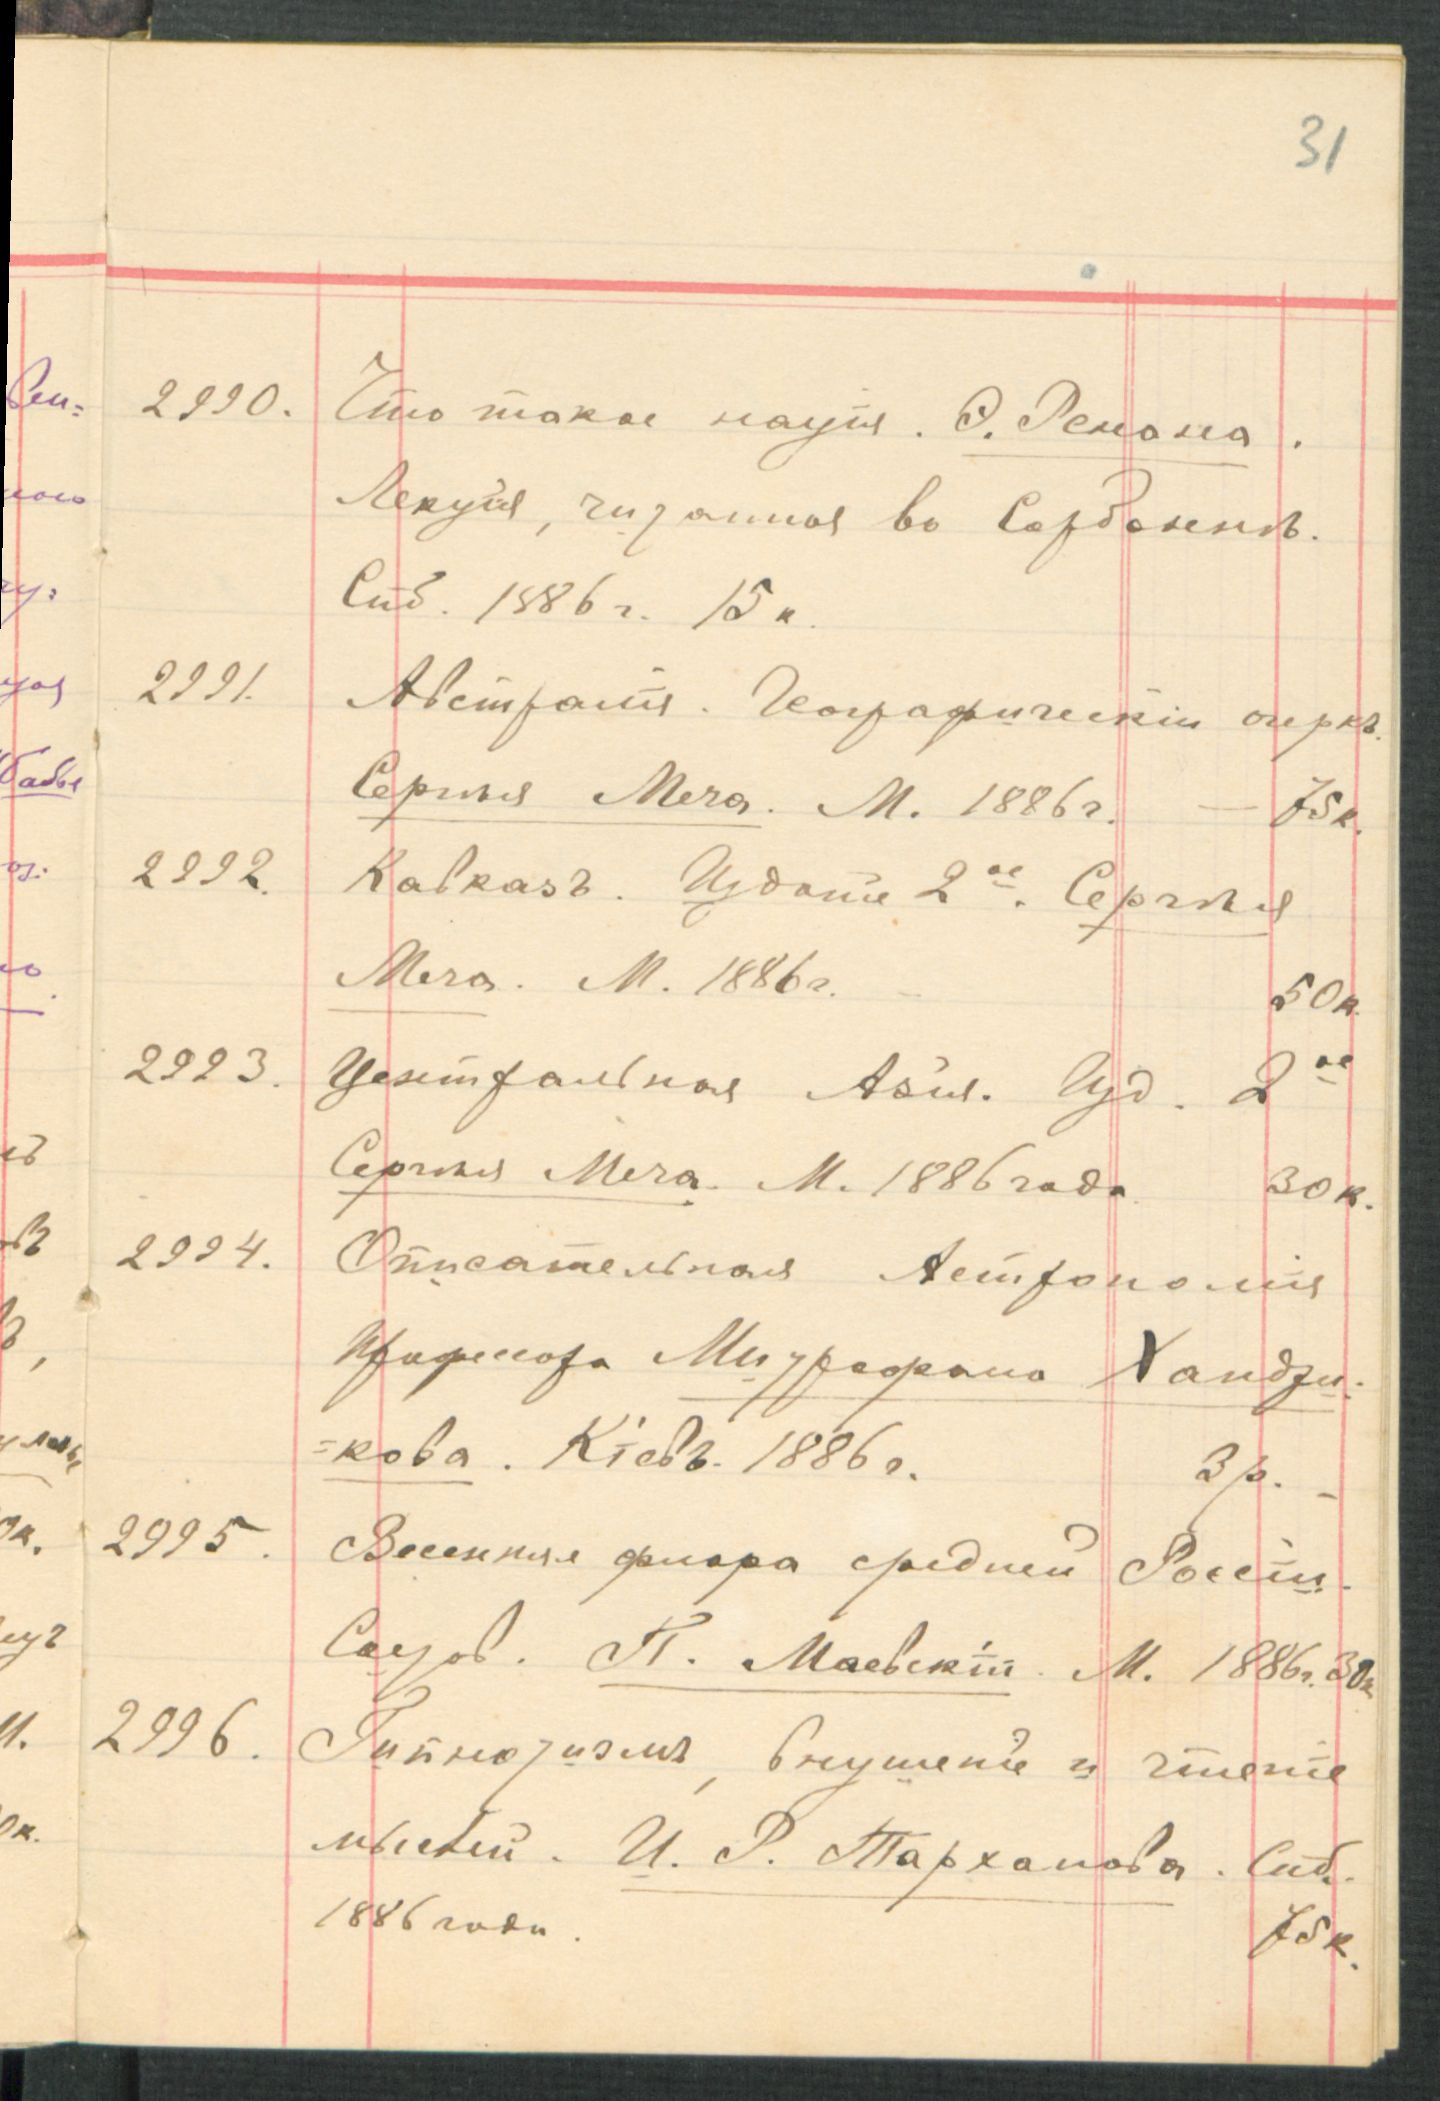 31
2990. Что такое нація. Э. Ренана.
Лекція, читанная во Сорбоннѣ.
Спб. 1886 г. 15 к.
2991. Австралія. Географическій очеркъ.
Сергѣя Меча. М. 1886 г. — 75 к.
2992. Кавказъ. Изданіе 2ое. Сергѣя
Меча. М. 1886 г. 50 к.
2993. Центральная Азія. Изд. 2ое
Сергѣя Меча. М. 1886 года 30 к.
2994. Описательная Астрономія
Профессора Митрофана Хандри-
=кова. Кіевъ. 1886 г. 3 р. –
2995. Весенняя флора средней Россіи.
Состав. П. Маевскій. М. 1886 г. 30 к
2996. Гипнотизмъ, внушеніе и чтеніе
мыслей. И. Р. Тарханова. Спб.
1886 года. 75 к.